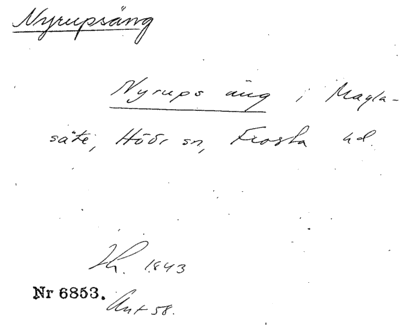 Nyrupsäng
Nyrups äng i Magla-
säte, Höörs sn, Frosta hd.
1843
Nr 6853.
Ant 58.